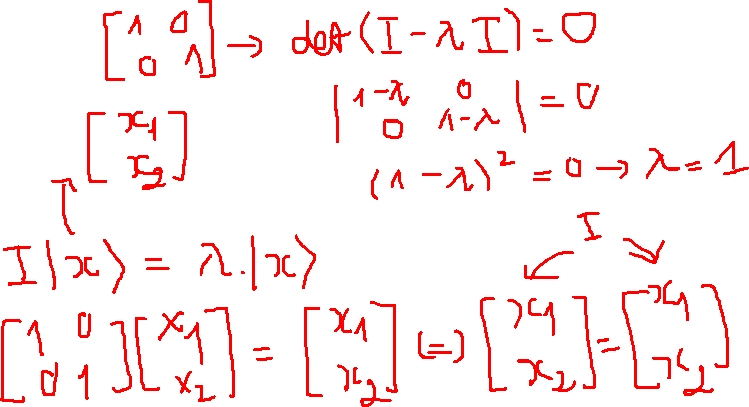 [1 0; 0 1] → det(I − λI) = 0
|1−λ 0; 0 1−λ| = 0
[x1; x2]
(1 − λ)² = 0 → λ = 1
I
I|x⟩ = λ.|x⟩
[1 0; 0 1][x1; x2] = [x1; x2] (=) [x1; x2] = [x1; x2]